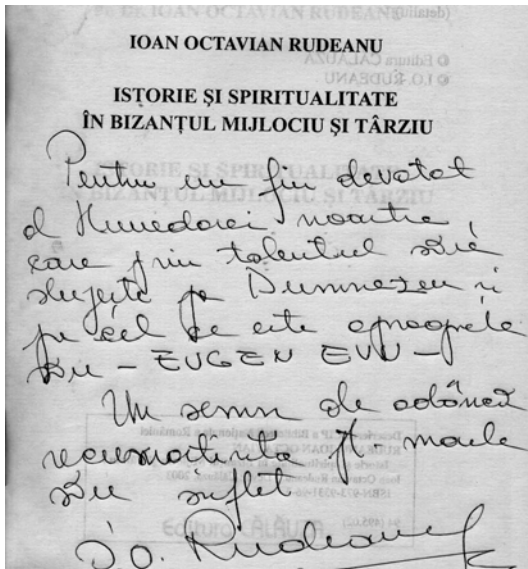 IOAN OCTAVIAN RUDEANU
ISTORIE ŞI SPIRITUALITATE
ÎN BIZANŢUL MIJLOCIU ŞI TÂRZIU
Pentru un fiu devotat
al Hunedoarei noastre
care prin talentul său
slujește pe Dumnezeu și
pe cel ce este aproapele
său - EUGEN EVU -
Un semn de adâncă
recunoștință marelui
său suflet
I.O. Rudeanu
Editura CĂLĂUZA